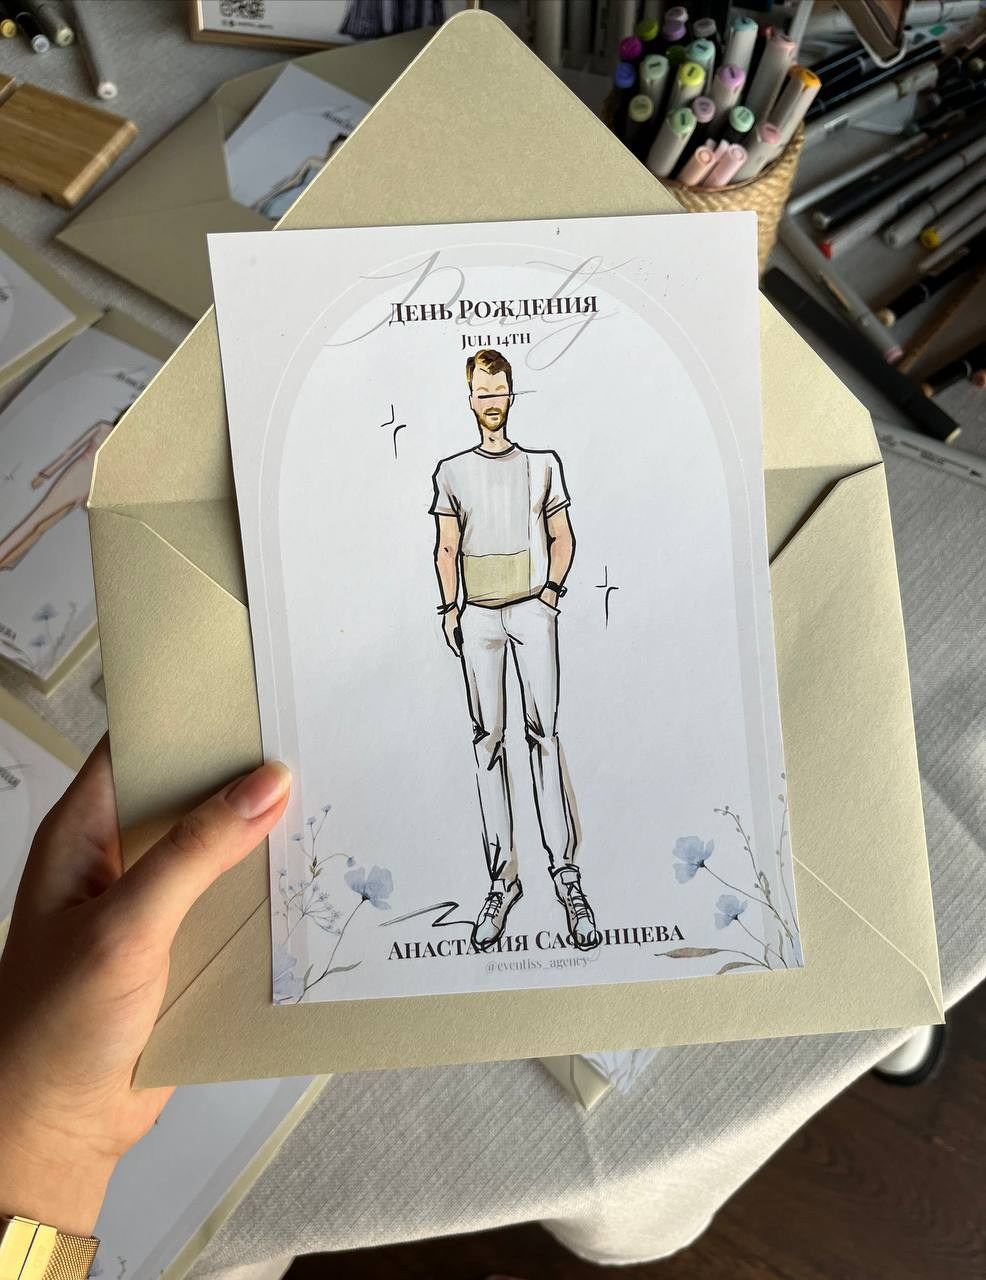 Party
День Рождения
Juli 14th
Анастасия Сафонцева
@eventiss_agency